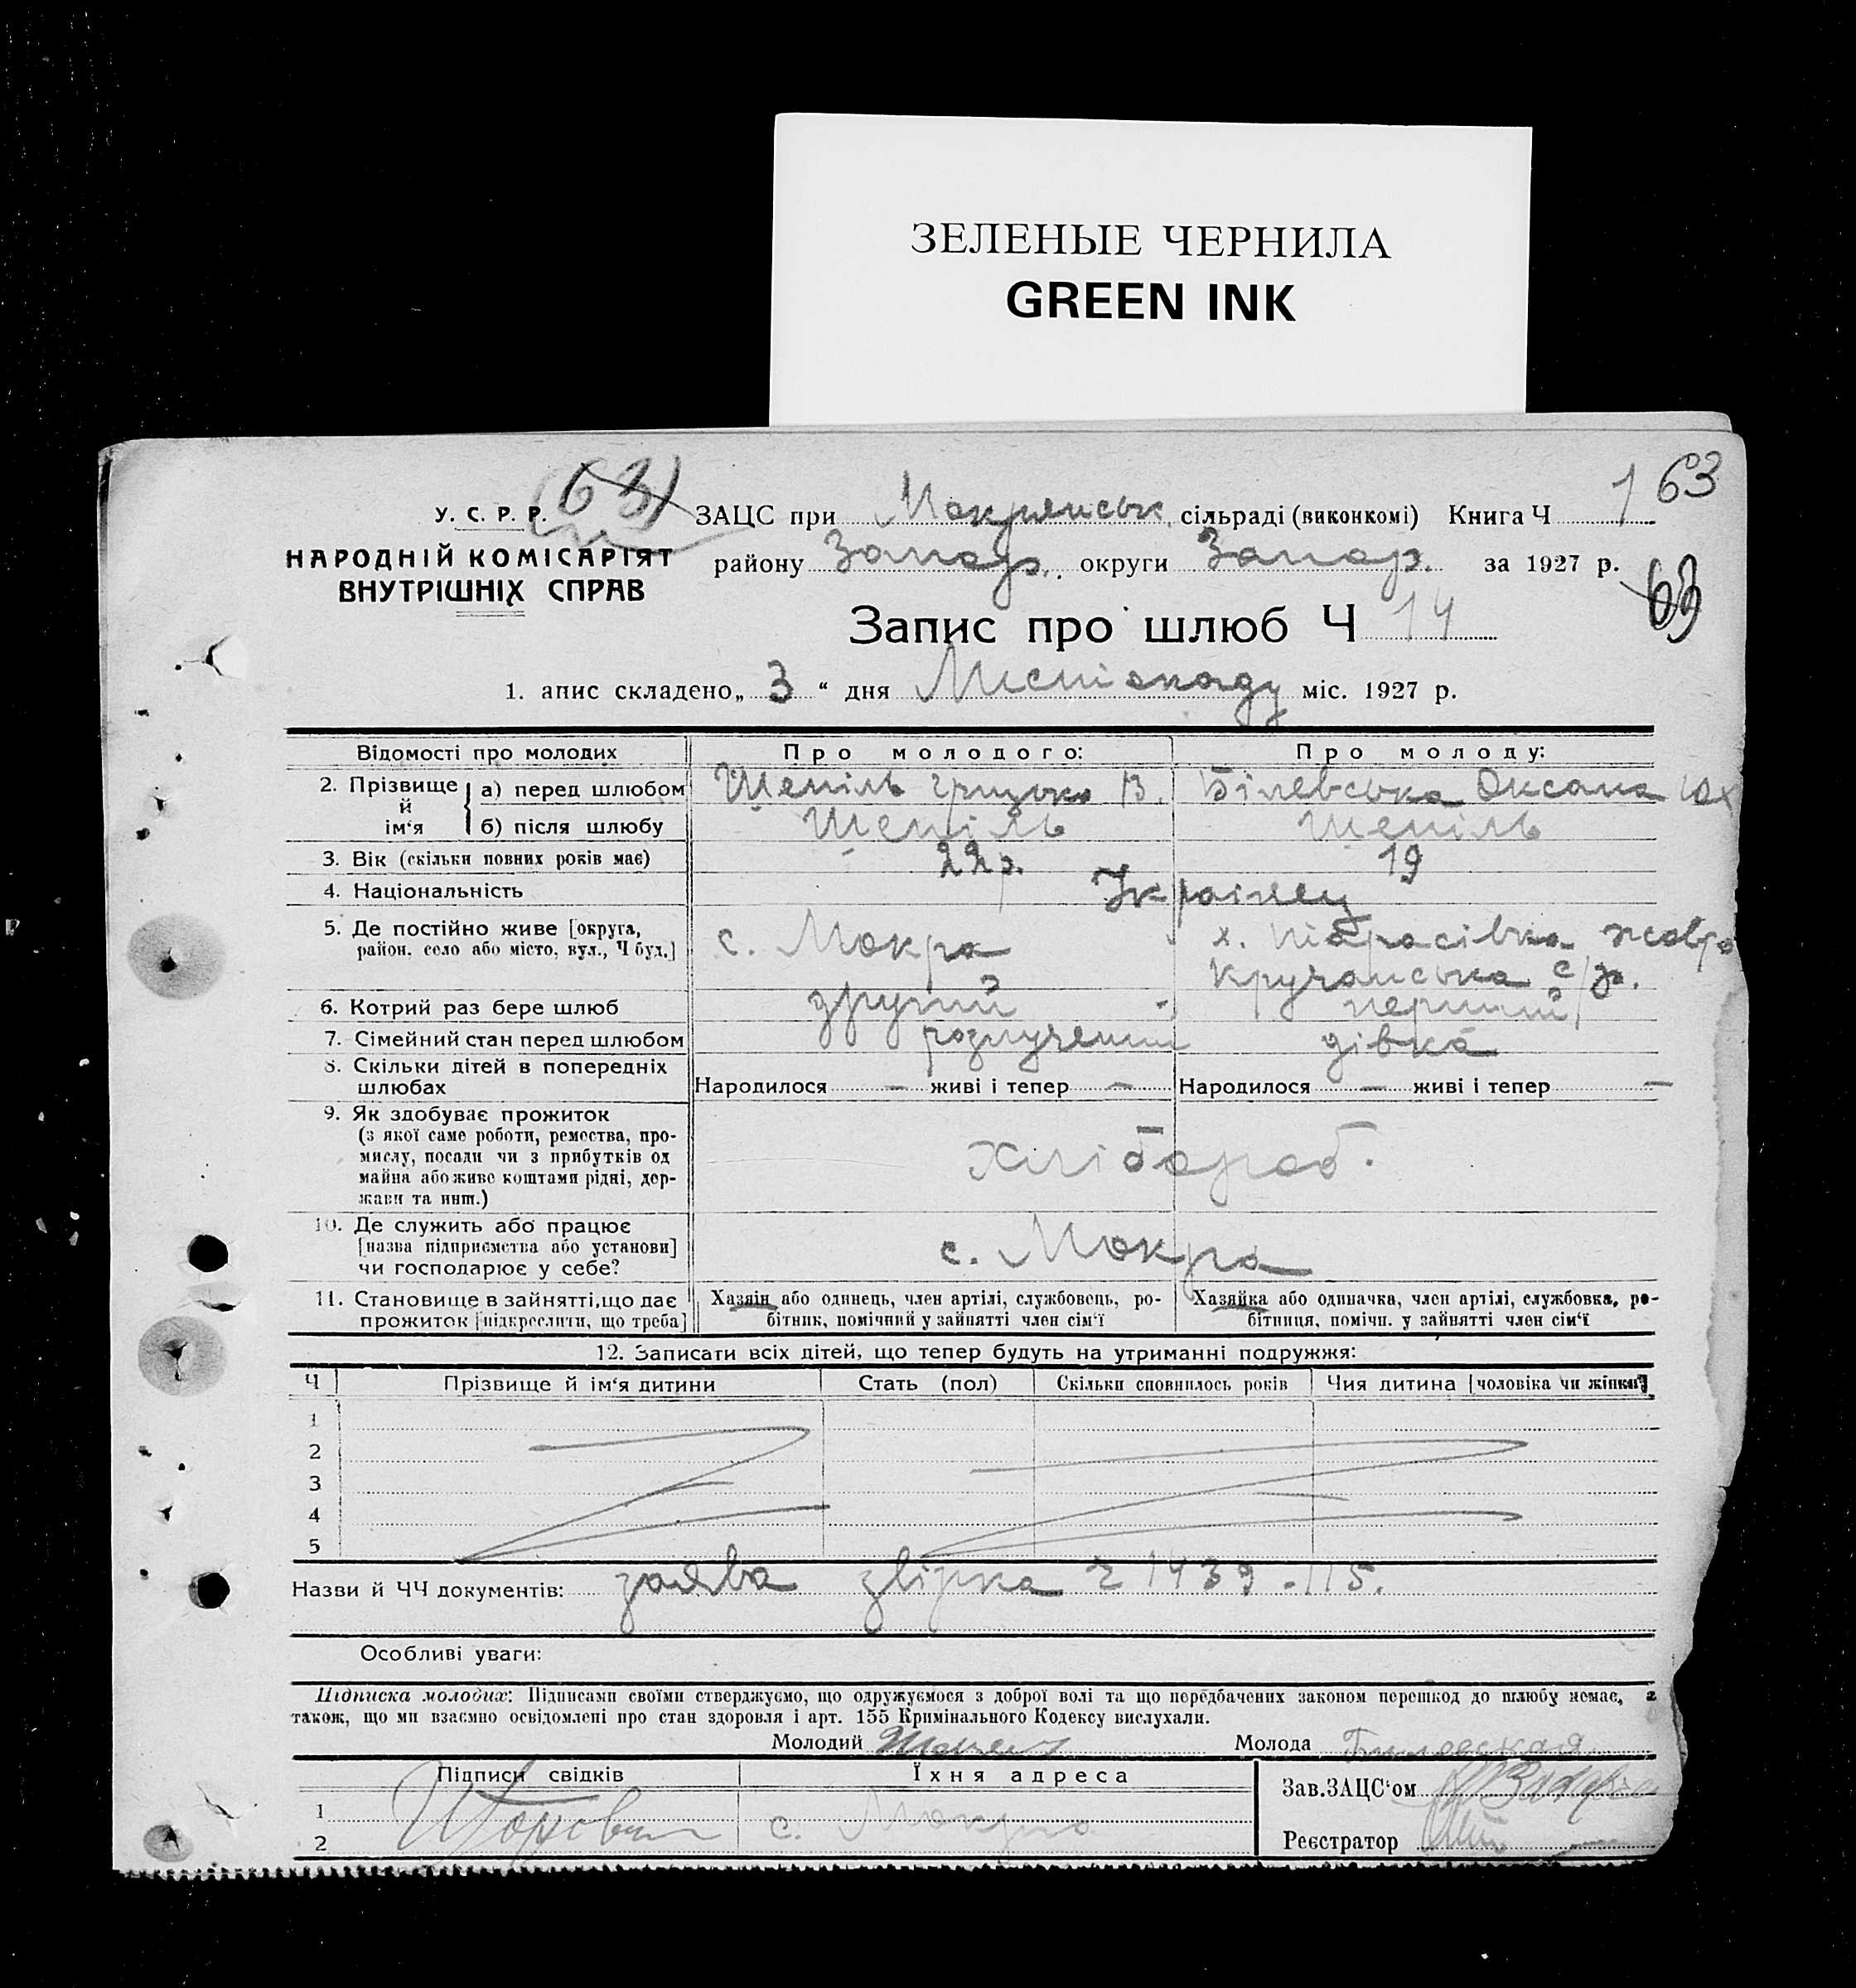 ЗЕЛЕНЫЕ ЧЕРНИЛА
GREEN INK
63
1 63
У. С. Р. Р.
НАРОДНІЙ КОМІСАРІЯТ
ВНУТРІШНІХ СПРАВ
ЗАЦС при Мокрянськ. сільраді (виконкомі) Книга Ч
району Запор. округи Запор. за 1927 р.
63
Запис про шлюб Ч 14
1. апис складено „ 3 “ дня Листопаду міс. 1927 р.
Відомості про молодих Про молодого: Про молоду:
2. Прізвище й ім‘я а) перед шлюбом Щепіль Грицько В. Білевська Оксана Юх
б) після шлюбу Щепіль Щепіль
3. Вік (скільки повних років має) 22 р. 19
4. Національність Українец
5. Де постійно живе [округа, район, село або місто, вул., Ч буд.] с. Мокра х.
Кручанська с/р.
6. Котрий раз бере шлюб другий перший
7. Сімейний стан перед шлюбом розлучений дівка
8. Скільки дітей в попередніх шлюбах Народилося — живі і тепер — Народилося — живі і тепер —
9. Як здобуває прожиток
(з якої саме роботи, ремества, про-
мислу, посади чи з прибутків од
майна або живе коштами рідні, дер-
жави та инш.)
хлібороб.
10. Де служить або працює
[назва підприємства або установи]
чи господарює у себе?
с. Мокра
11. Становище в зайнятті, що дає
прожиток [підкреслити, що треба]
Хазяїн або одинець, член артілі, службовець, ро-
бітник, помічний у зайнятті член сім‘ї
Хазяйка або одиначка, член артілі, службовка, ро-
бітниця, помічн. у зайнятті член сім‘ї
12. Записати всіх дітей, що тепер будуть на утриманні подружжя:
Ч Прізвище й ім‘я дитини Стать (пол) Скільки сповнилось років Чия дитина [чоловіка чи жінки]
1
2
3
4
5
Назви й ЧЧ документів: заява звірка ч 1439 - 115.
Особливі уваги:
Підписка молодих: Підписами своїми стверджуємо, що одружуємося з доброї волі та що передбачених законом перешкод до шлюбу немає, а
також, що ми взаємно освідомлені про стан здоровля і арт. 155 Кримінального Кодексу вислухали.
Молодий Молода Билевская
Підписи свідків Їхня адреса
Зав. ЗАЦС‘ом
1
с. Мокра
2
Реєстратор